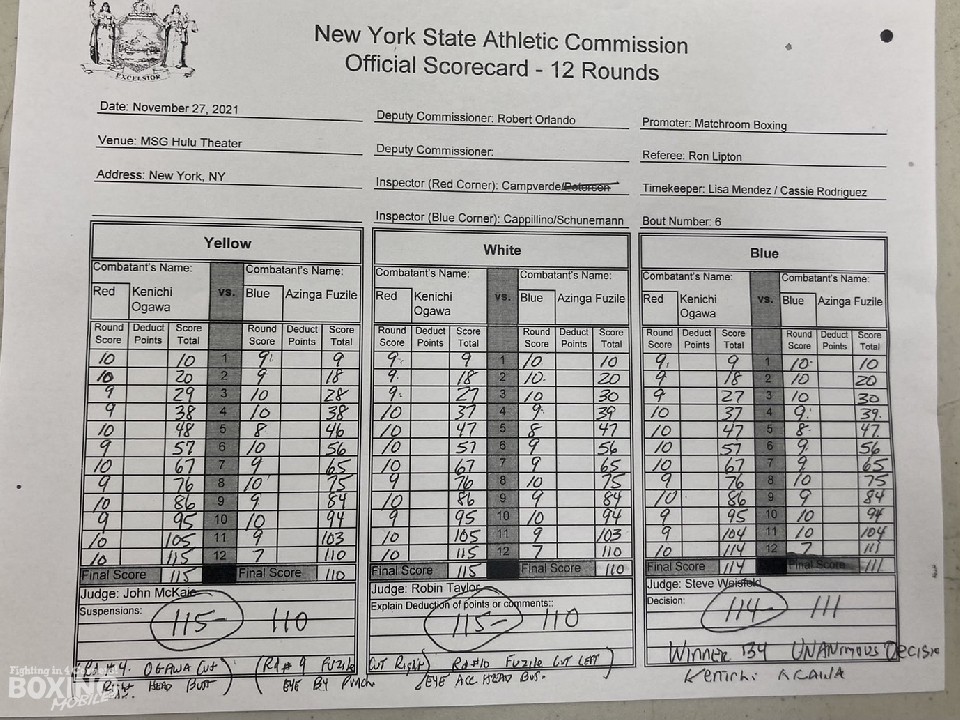 EXCELSIOR
New York State Athletic Commission
Official Scorecard - 12 Rounds
Date: November 27, 2021
Deputy Commissioner: Robert Orlando
Promoter: Matchroom Boxing
Venue: MSG Hulu Theater
Deputy Commissioner:
Referee: Ron Lipton
Address: New York, NY
Inspector (Red Corner): Campverde/Peterson
Timekeeper: Lisa Mendez / Cassie Rodriguez
Inspector (Blue Corner): Cappillino/Schunemann
Bout Number: 6
Yellow
Combatant's Name: Combatant's Name:
Red Kenichi Ogawa vs. Blue Azinga Fuzile
Round Score Deduct Points Score Total Round Score Deduct Points Score Total
10 10 1 9 9
10 20 2 9 18
9 29 3 10 28
9 38 4 10 38
10 48 5 8 46
9 57 6 10 56
10 67 7 9 65
9 76 8 10 75
10 86 9 9 84
9 95 10 10 94
10 105 11 9 103
10 115 12 7 110
Final Score 115 Final Score 110
Judge: John McKaie
Suspensions:
115- 110
White
Combatant's Name: Combatant's Name:
Red Kenichi Ogawa vs. Blue Azinga Fuzile
Round Score Deduct Points Score Total Round Score Deduct Points Score Total
9 9 1 10 10
9 18 2 10 20
9 27 3 10 30
10 37 4 9 39
10 47 5 8 47
10 57 6 9 56
10 67 7 9 65
9 76 8 10 75
10 86 9 9 84
9 95 10 10 94
10 105 11 9 103
10 115 12 7 110
Final Score 115 Final Score 110
Judge: Robin Taylor
Explain Deduction of points or comments::
115- 110
Blue
Combatant's Name: Combatant's Name:
Red Kenichi Ogawa vs. Blue Azinga Fuzile
Round Score Deduct Points Score Total Round Score Deduct Points Score Total
9 9 1 10 10
9 18 2 10 20
9 27 3 10 30
10 37 4 9 39
10 47 5 8 47
10 57 6 9 56
10 67 7 9 65
9 76 8 10 75
10 86 9 9 84
9 95 10 10 94
9 104 11 10 104
10 114 12 7 111
Final Score 114 Final Score 111
Judge: Steve Weisfeld
Decision:
114- 111
WINNER BY UNANIMOUS Decision
Rd #4 OGAWA CUT (Rd #9 FUZILE CUT Right) Rd #10 FUZILE CUT LEFT
Right HEAD BUTT) EYE BY PUNCH (EYE ACC HEAD BUTT.
Fighting in
BOXING
MOBILE